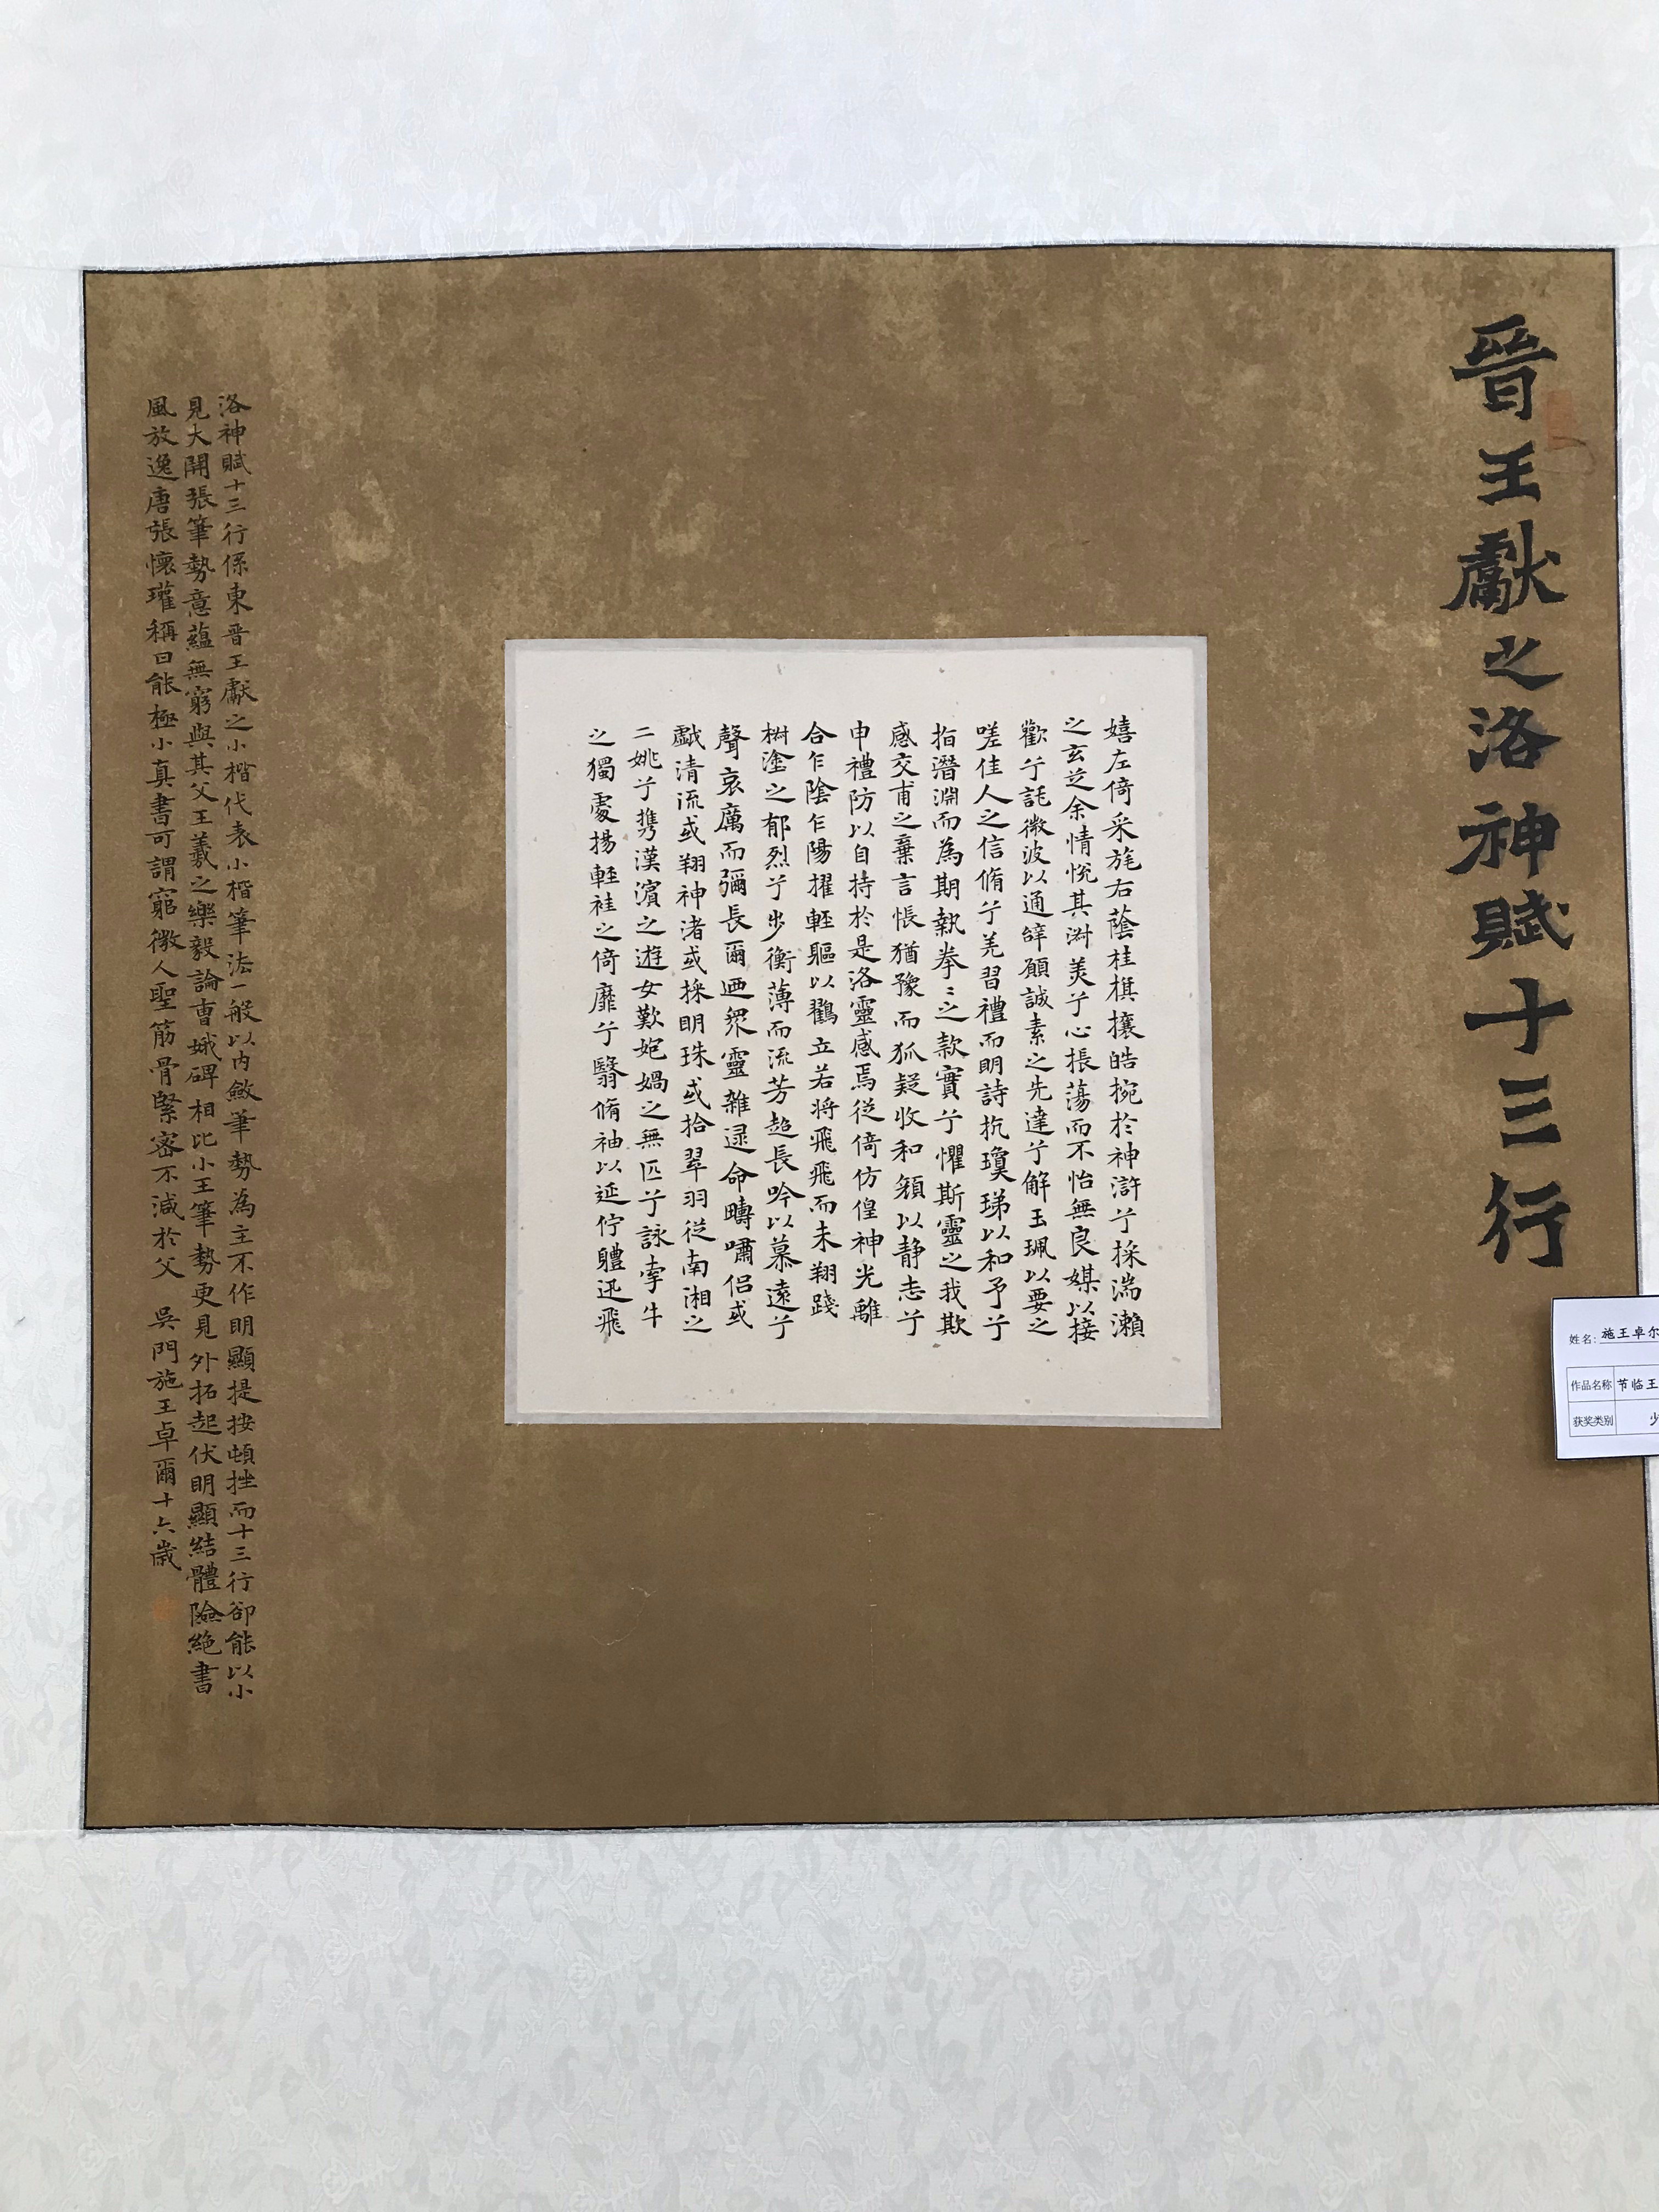 晉王獻之洛神賦十三行
嬉左倚采旄右蔭桂棋攘皓捥於神滸兮採湍瀨
之玄芝余情悅其淑美兮心振蕩而不怡無良媒以接
歡兮託微波以通辭願誠素之先達兮解玉珮以要之
嗟佳人之信脩兮羌習禮而明詩抗瓊珶以和予兮
指潛淵而為期執拳〻之款實兮懼斯靈之我欺
感交甫之棄言悵猶豫而狐疑收和顏以静志兮
申禮防以自持於是洛靈感焉從倚仿偟神光離
合乍陰乍陽擢輕軀以鸖立若将飛飛而未翔踐
樹塗之郁烈兮步衡薄而流芳超長吟以慕遠兮
聲哀厲而彌長爾迺衆靈雜遝命疇嘯侶或
戲清流或翔神渚或採明珠或拾翠羽從南湘之
二姚兮携漢濱之遊女歎匏媧之無匹兮詠牽牛
之獨處揚輕袿之倚靡兮翳脩袖以延佇體迅飛
洛神賦十三行係東晋王獻之小楷代表小楷筆法一般以内斂筆勢為主不作明顯提按頓挫而十三行卻能以小
見大開張筆勢意蘊無窮與其父王羲之樂毅論曹娥碑相比小王筆勢更見外拓起伏明顯結體險絶書
風放逸唐張懷瓘稱曰能極小真書可謂窮微人聖筋骨緊密不減於父 吳門施王卓爾十六歲
姓名：施王卓尔
作品名称 节临王
获奖类别